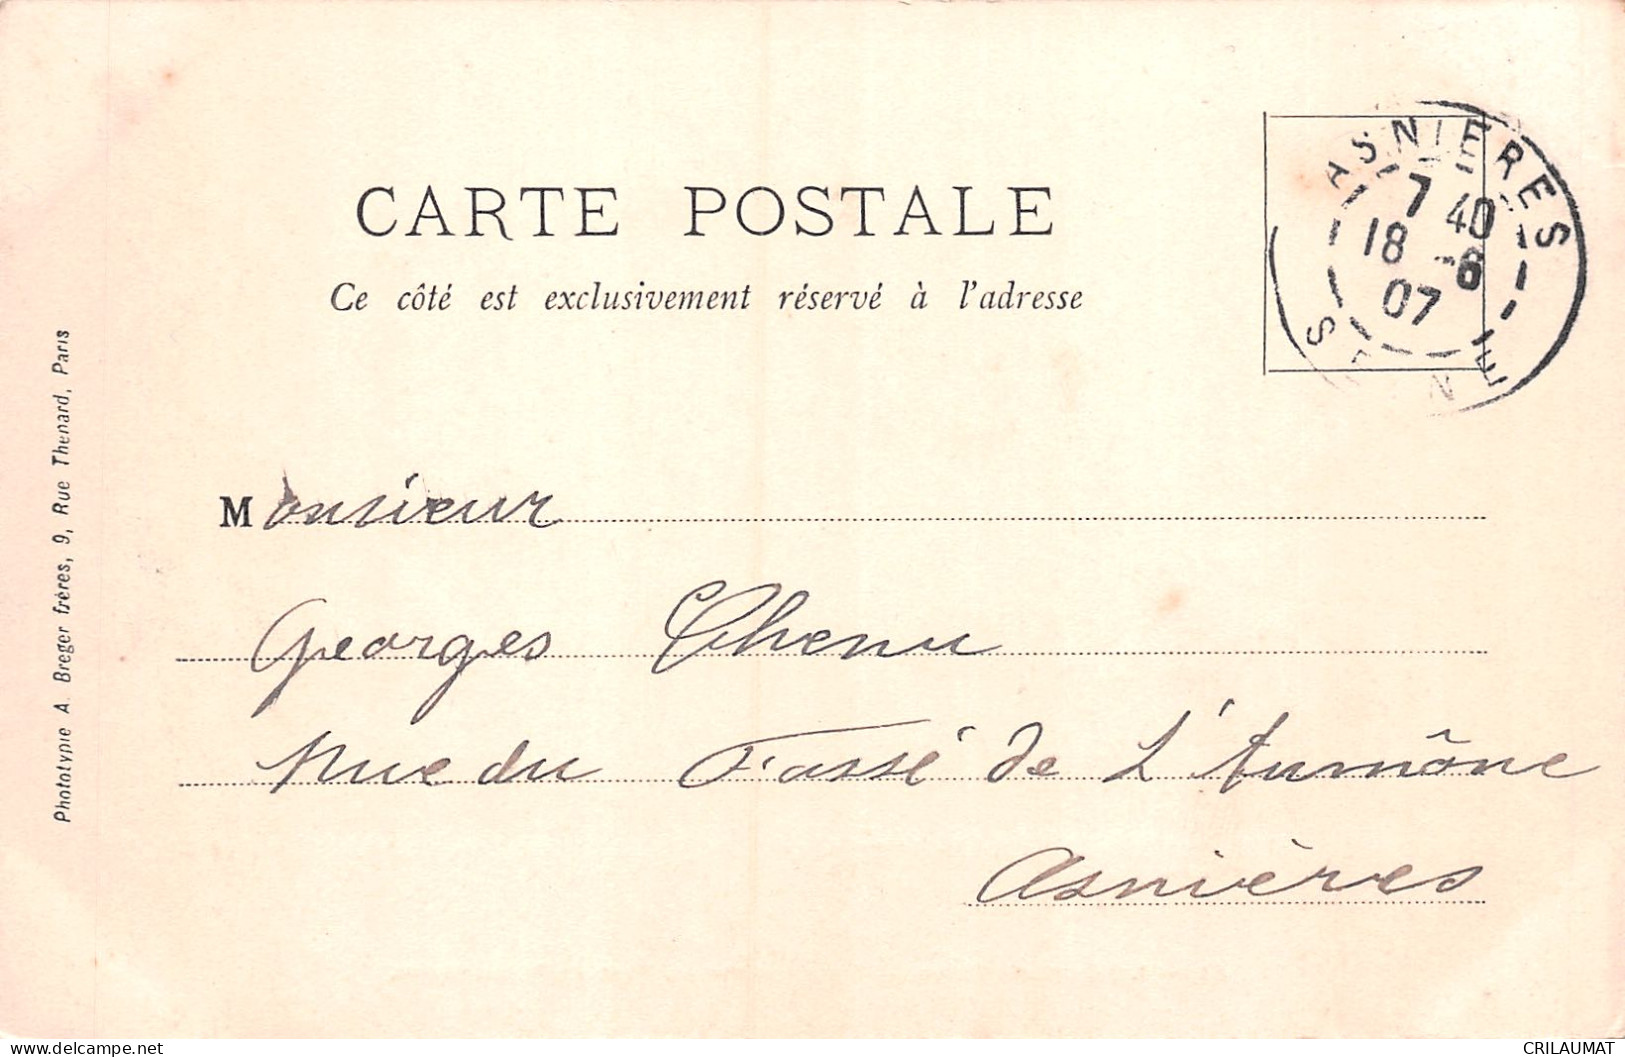 CARTE POSTALE
Ce côté est exclusivement réservé à l'adresse
ASNIERES
7 40
18 -6
07
SEINE
Monsieur
Georges Chenu
Rue du Fossé de L'Aumône
Asnières
Phototypie A. Breger frères, 9, Rue Thenard, Paris
www.delcampe.net
CRILAUMAT